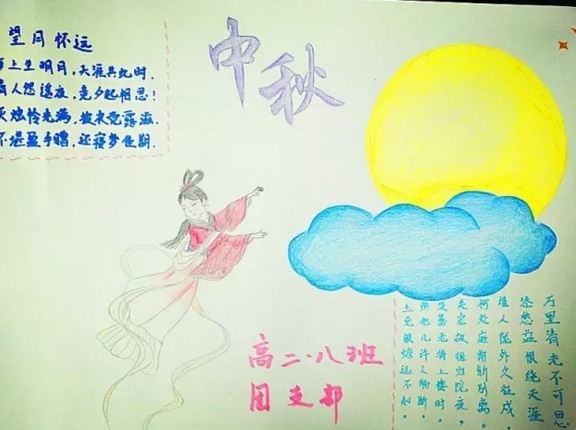 望月怀远
海上生明月,天涯共此时.
情人怨遥夜,竟夕起相思!
灭烛怜光满,披衣觉露滋.
不堪盈手赠,还寝梦佳期.
中秋
万里清光不可思
添愁益恨绕天涯
谁人陇外久征戍,
何处庭前新别离。
失宠故姬归院夜,
老将上楼时,
照他几许人肠断,
玉兔银蟾远不
高二·八班
团支部